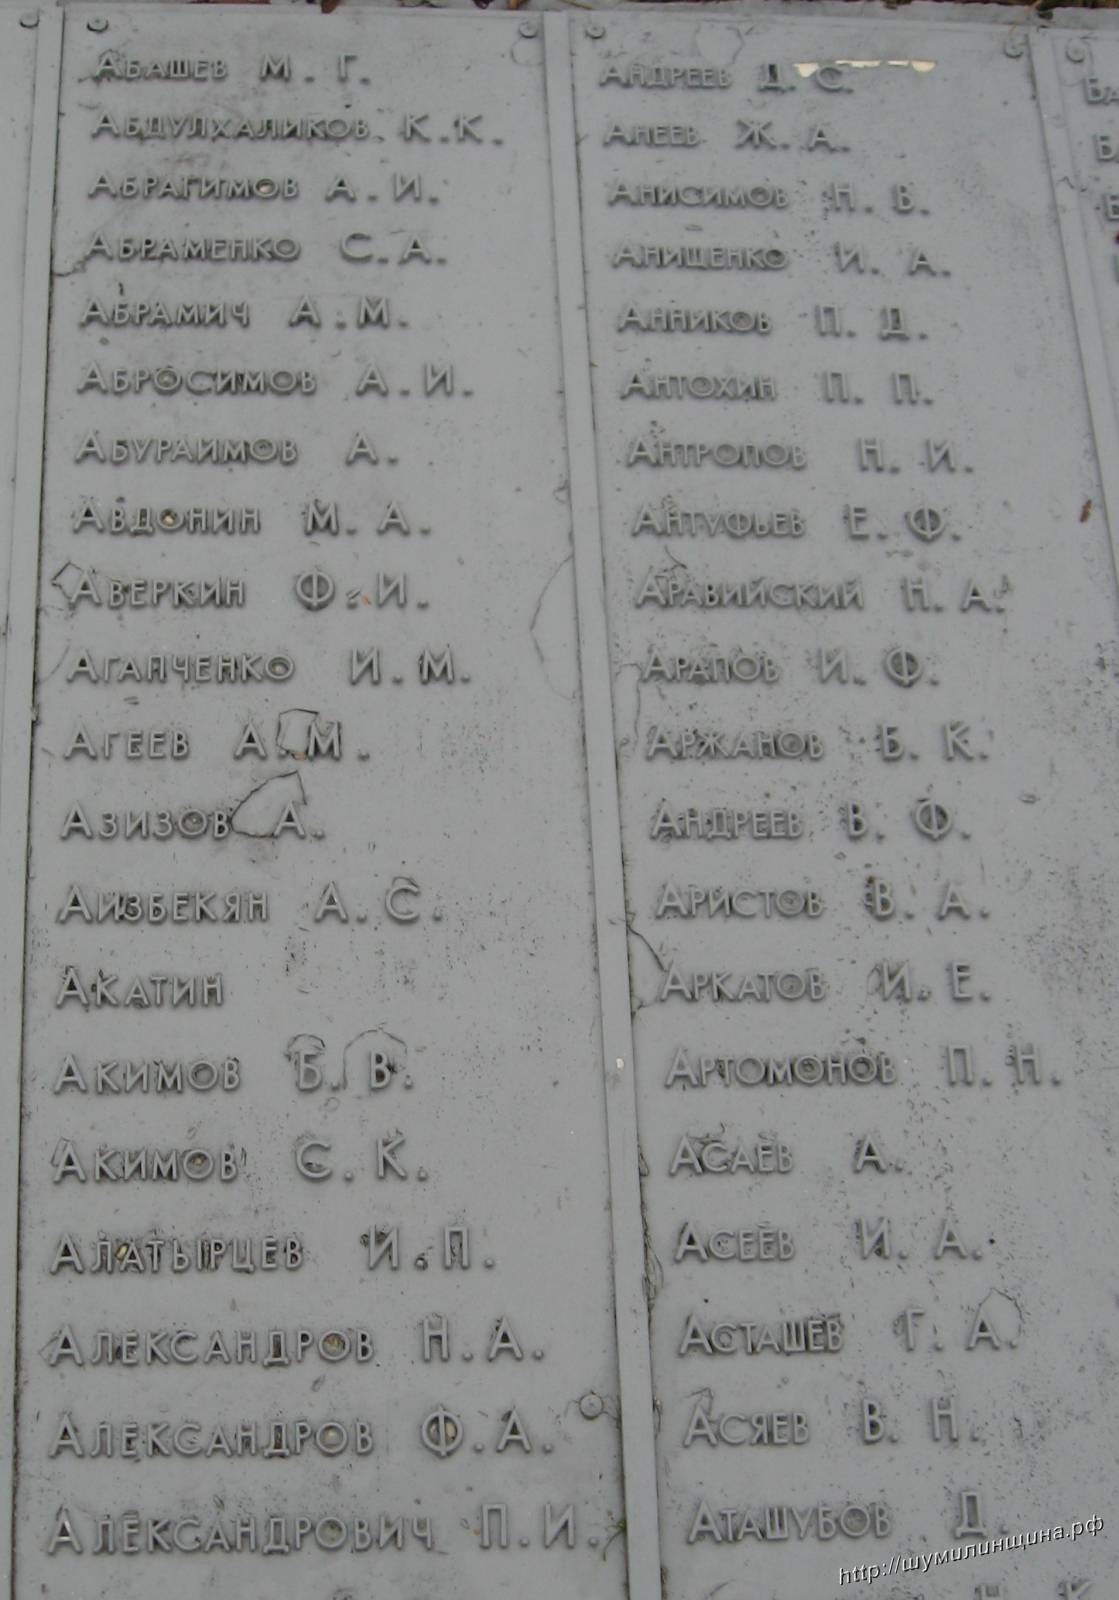 Абашев М. Г.
Абдулхаликов К. К.
Абрагимов А. И.
Абраменко С. А.
Абрамич А. М.
Абросимов А. И.
Абураимов А.
Авдонин М. А.
Аверкин Ф. И.
Агапченко И. М.
Агеев А. М.
Азизов А.
Аизбекян А. С.
Акатин
Акимов Б. В.
Акимов С. К.
Алатырцев И. П.
Александров Н. А.
Александров Ф. А.
Александрович П. И.
Андреев Д. С.
Анеев Ж. А.
Анисимов Н. В.
Анищенко И. А.
Анников П. Д.
Антохин П. П.
Антропов Н. И.
Антуфьев Е. Ф.
Аравийский Н. А.
Арапов И. Ф.
Аржанов Б. К.
Андреев В. Ф.
Аристов В. А.
Аркатов И. Е.
Артомонов П. Н.
Асаев А.
Асеев И. А.
Асташев Г. А.
Асяев В. Н.
Аташубов Д.
http://шумилинщина.рф